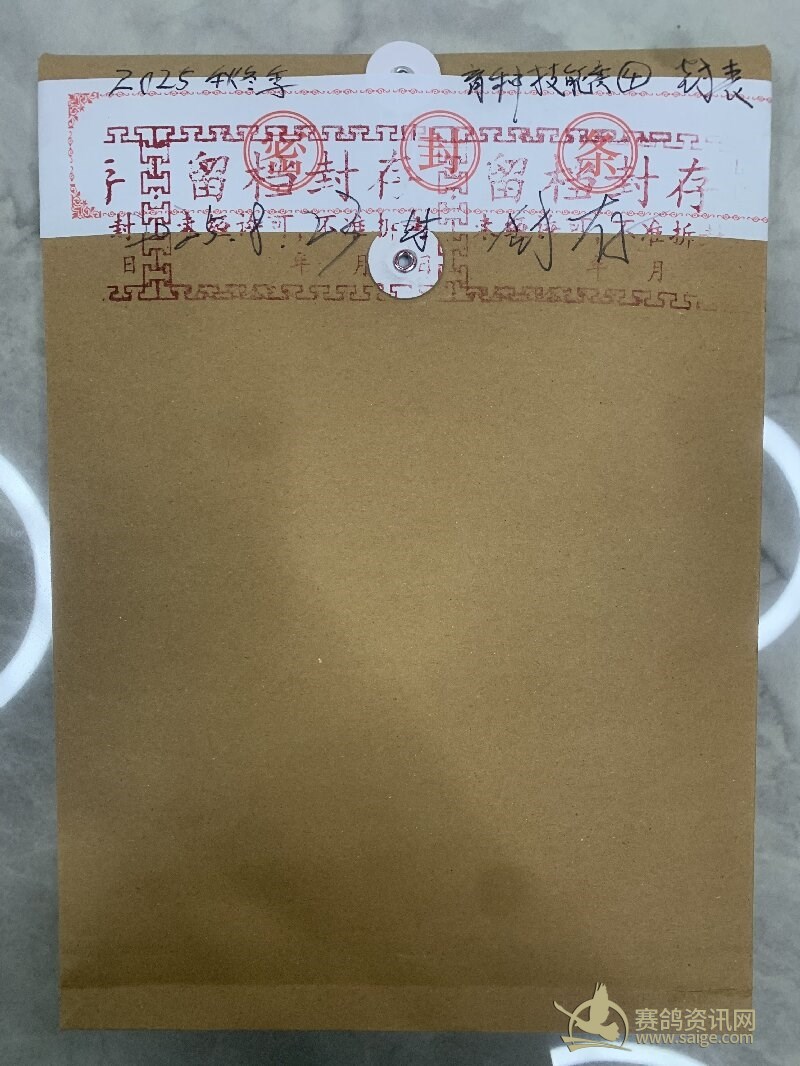 2025秋冬季 育种技能赛④ 封表
密 封 条
留档封存 留档封存
封 未经许可 不准拆封 未经许可 不准拆
25.8.23 封存
日 年 月 日 年 月
赛鸽资讯网
www.saige.com